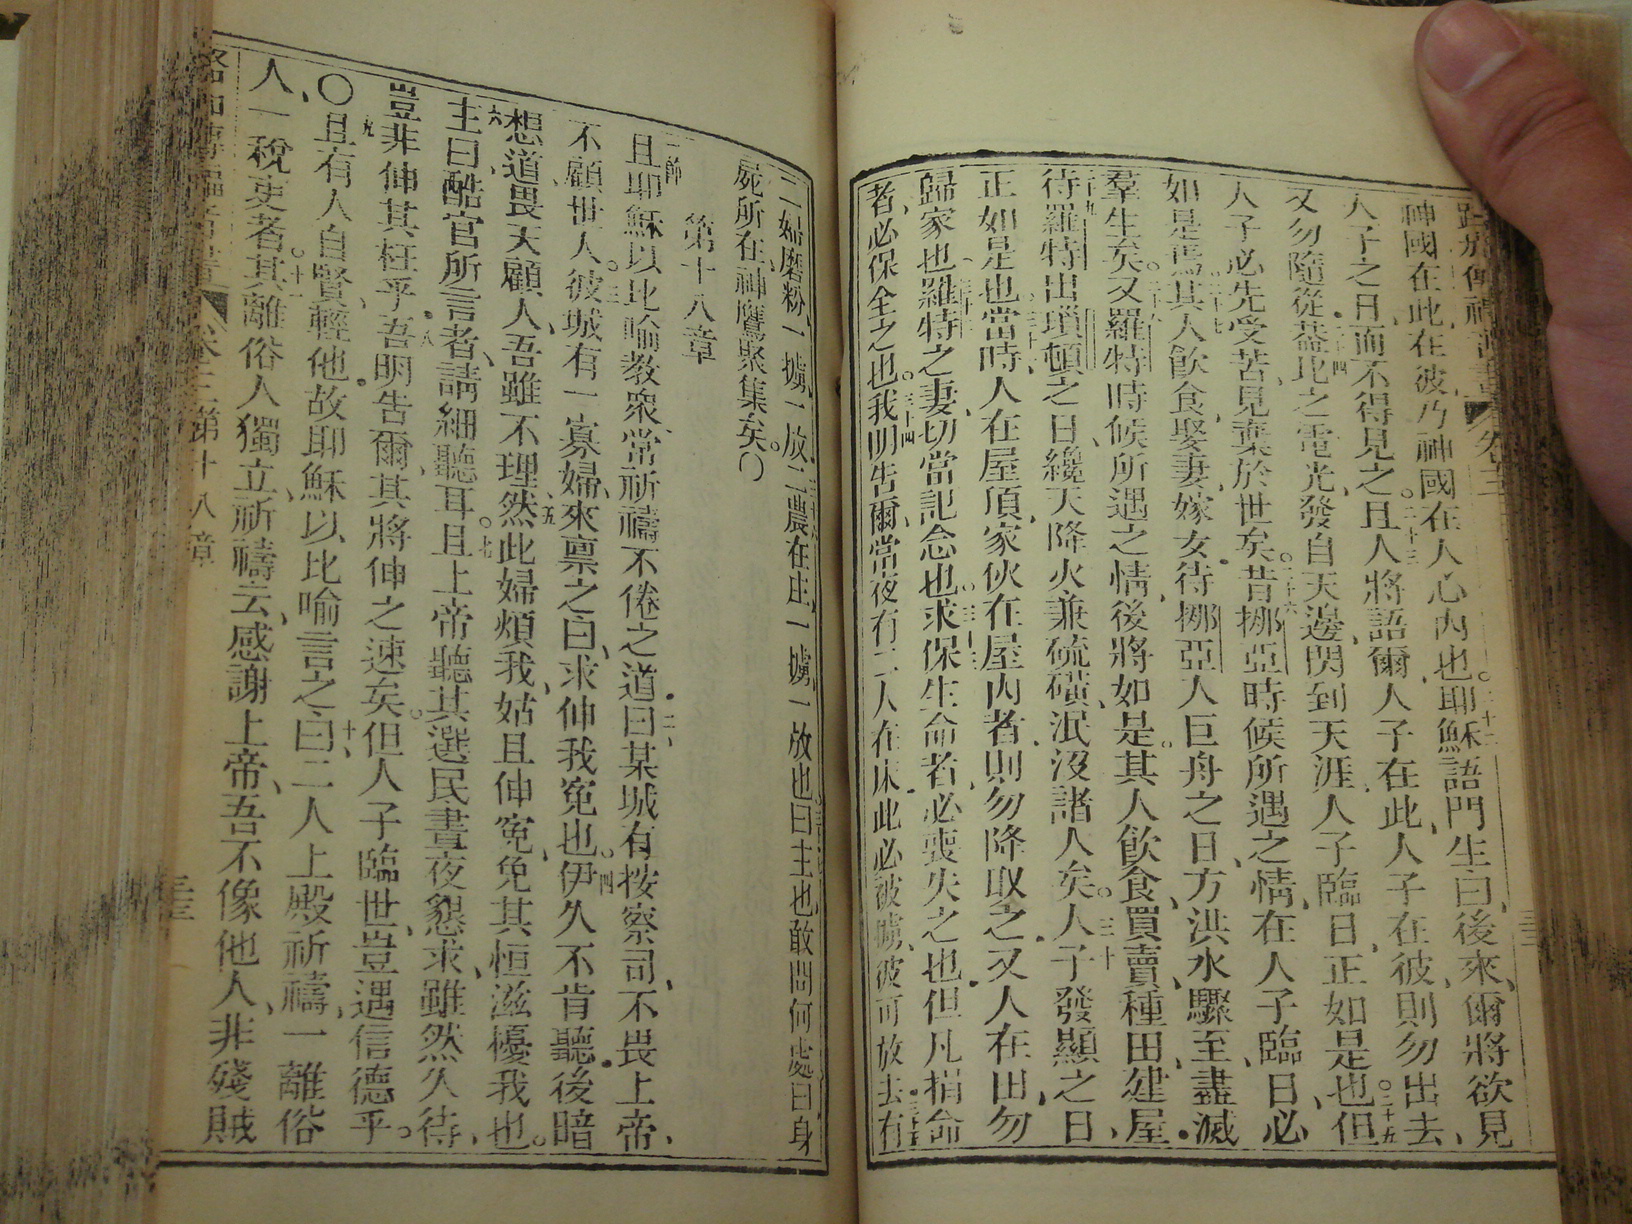 神國在此在彼乃神國在人心內也耶穌語門生曰後來爾將欲見
人子之日而不得見之且人將語爾人子在此人子在彼則勿出去
又勿隨從蓋此之電光發自天邊閃到天涯人子臨日正如是也但
人子必先受苦見棄於世矣昔挪亞時候所遇之情在人子臨日必
如是焉其人飲食娶妻嫁女待挪亞人巨舟之日方洪水驟至盡滅
羣生矣又羅特時候所遇之情後將如是其人飲食買賣種田建屋
待羅特出瑣頓之日纔天降火兼硫磺泯沒諸人矣人子發顯之日
正如是也當時人在屋頂家伙在屋內者則勿降取之又人在田勿
歸家也羅特之妻切當記念也求保生命者必喪失之也但凡捐命
者必保全之也我明告爾當夜有二人在床此必被擄彼可放去有
二婦磨粉一擄一放二農在庄一擄一放也曰主也敢問何處曰身
屍所在神鷹聚集矣〇
第十八章
一節
且耶穌以比喻教衆常祈禱不倦之道二曰某城有按察司不畏上帝
不顧世人三彼城有一寡婦來稟之曰求伸我寃也四伊久不肯聽後暗
想道畏天顧人吾雖不理五然此婦煩我姑且伸寃免其恒滋擾我也
六主曰酷官所言者請細聽耳七且上帝聽其選民晝夜懇求雖然久待
豈非伸其枉乎八吾明告爾其將伸之速矣但人子臨世豈遇信德乎
〇九且有人自賢輕他故耶穌以比喻言之曰十二人上殿祈禱一離俗
人一稅吏者十一其離俗人獨立祈禱云感謝上帝吾不像他人非殘賊
卷三第十八章